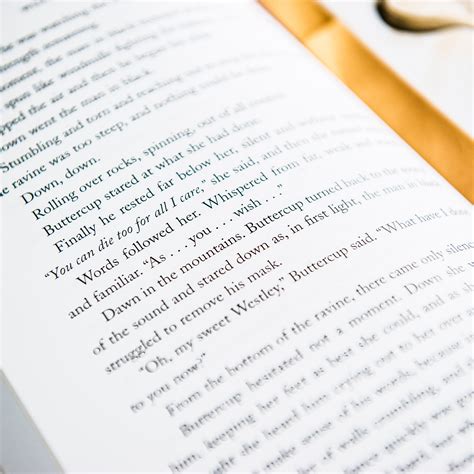 spun like windmills fighting the
pped the air and then he began
down went the man in black.
Stumbling and torn and reaching out to stop his
ravine was too steep, and nothing could be
Down, down.
Rolling over rocks, spinning, out of all
Buttercup stared at what she had done.
Finally he rested far below her, silent and without
“You can die too for all I care,” she said, and then
Words followed her. Whispered from far, weak and
and familiar. “As . . . you . . . wish . . .”
Dawn in the mountains. Buttercup turned back to the
of the sound and stared down as, in first light, the man in black
struggled to remove his mask.
“Oh, my sweet Westley,” Buttercup said. “What have I
to you now?”
From the bottom of the ravine, there came only silen
Buttercup hesitated not a moment. Down she
him, keeping her feet as best she could, and as
she heard him crying out to her over
make sense of his words, because
of walls crumbling, and